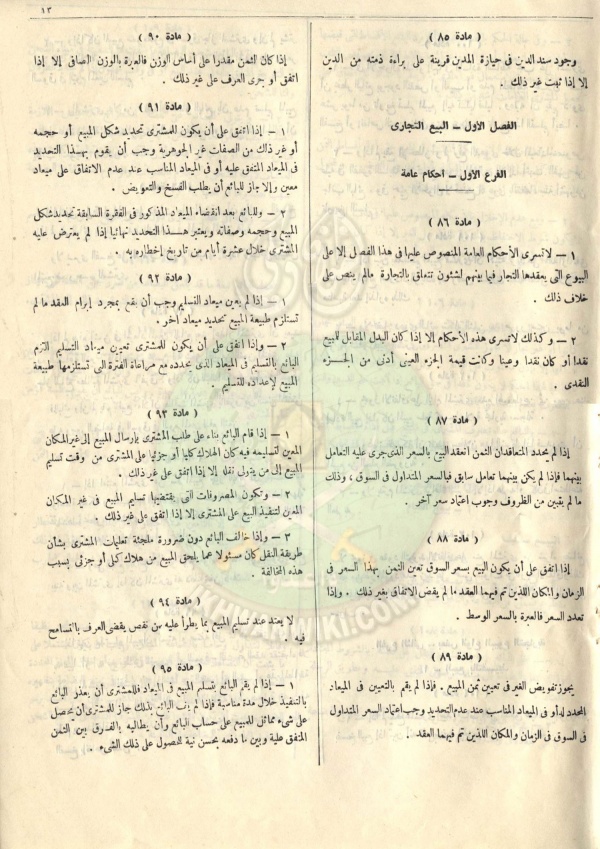 ١٣
( مادة ٨٥ )
وجود سند الدين فى حيازة المدين قرينة على براءة ذمته من الدين
إلا إذا ثبت غير ذلك .
الفصل الأول – البيع التجارى
الفرع الأول – أحكام عامة
( مادة ٨٦ )
١ – لاتسرى الأحكام العامة المنصوص عليها فى هذا الفصل إلا على
البيوع التى يعقدها التجار فيما بينهم لشئون تتعلق بالتجارة مالم ينص على
خلاف ذلك .
٢ – وكذلك لاتسرى هذه الأحكام إلا إذا كان البدل المقابل للمبيع
نقدا أو كان نقدا وعينا وكانت قيمة الجزء العينى أدنى من الجزء
النقدى .
( مادة ٨٧ )
إذا لم يحدد المتعاقدان الثمن انعقد البيع بالسعر الذى جرى عليه التعامل
بينهما فإذا لم يكن بينهما تعامل سابق فبالسعر المتداول فى السوق ، وذلك
ما لم يتبين من الظروف وجوب اعتماد سعر آخر .
( مادة ٨٨ )
إذا اتفق على أن يكون البيع بسعر السوق تعين الثمن بهذا السعر فى
الزمان والمكان اللذين تم فيهما العقد ما لم يقض الاتفاق بغير ذلك . وإذا
تعدد السعر فالعبرة بالسعر الوسط .
( مادة ٨٩ )
يجوز تفويض الغير فى تعيين ثمن المبيع . فإذا لم يقم بالتعيين فى الميعاد
المحدد له أو فى الميعاد المناسب عند عدم التحديد وجب اعتماد السعر المتداول
فى السوق فى الزمان والمكان اللذين تم فيهما العقد .
( مادة ٩٠ )
إذا كان الثمن مقدرا على أساس الوزن فالعبرة بالوزن الصافى إلا إذا
اتفق أو جرى العرف على غير ذلك .
( مادة ٩١ )
١ – إذا اتفق على أن يكون للمشترى تحديد شكل المبيع أو حجمه
أو غير ذلك من الصفات غير الجوهرية وجب أن يقوم بهذا التحديد
فى الميعاد المتفق عليه أو فى الميعاد المناسب عند عدم الاتفاق على ميعاد
معين وإلا جاز للبائع أن يطلب الفسخ والتعويض .
٢ – وللبائع بعد انقضاء الميعاد المذكور فى الفقرة السابقة تحديد شكل
المبيع وحجمه وصفاته ويعتبر هذا التحديد نهائيا إذا لم يعترض عليه
المشترى خلال عشرة أيام من تاريخ إخطاره به .
( مادة ٩٢ )
١ – إذا لم يعين ميعاد التسليم وجب أن يقع بمجرد إبرام العقد ما لم
تستلزم طبيعة المبيع تحديد ميعاد آخر .
٢ – وإذا اتفق على أن يكون للمشترى تعيين ميعاد التسليم التزم
البائع بالتسليم فى الميعاد الذى يحدده مع مراعاة الفترة التى تستلزمها طبيعة
المبيع لإعداده للتسليم .
( مادة ٩٣ )
١ – إذا قام البائع بناء على طلب المشترى بإرسال المبيع إلى غير المكان
المعين لتسليمه فيه كان الهلاك كليا أو جزئيا على المشترى من وقت تسليم
المبيع إلى من يتولى نقله إلا إذا اتفق على غير ذلك .
٢ – وتكون المصروفات التى يقتضيها تسليم المبيع فى غير المكان
المعين لتنفيذ البيع على المشترى إلا إذا اتفق على غير ذلك .
٣ – وإذا خالف البائع دون ضرورة ملجئة تعليمات المشترى بشأن
طريقة النقل كان مسئولا عما يلحق المبيع من هلاك كلى أو جزئى بسبب
هذه المخالفة .
( مادة ٩٤ )
لا يعتد عند تسليم المبيع بما يطرأ عليه من نقص يقضى العرف بالتسامح
فيه .
( مادة ٩٥ )
١ – إذا لم يقم البائع بتسليم المبيع فى الميعاد فللمشترى أن يعذر البائع
بالتنفيذ خلال مدة مناسبة فإذا لم يقم البائع بذلك جاز للمشترى أن يحصل
على شىء مماثل للمبيع على حساب البائع وأن يطالبه بالفرق بين الثمن
المتفق عليه وبين ما دفعه بحسن نية للحصول على ذلك الشىء .
IKHWANWIKI.COM